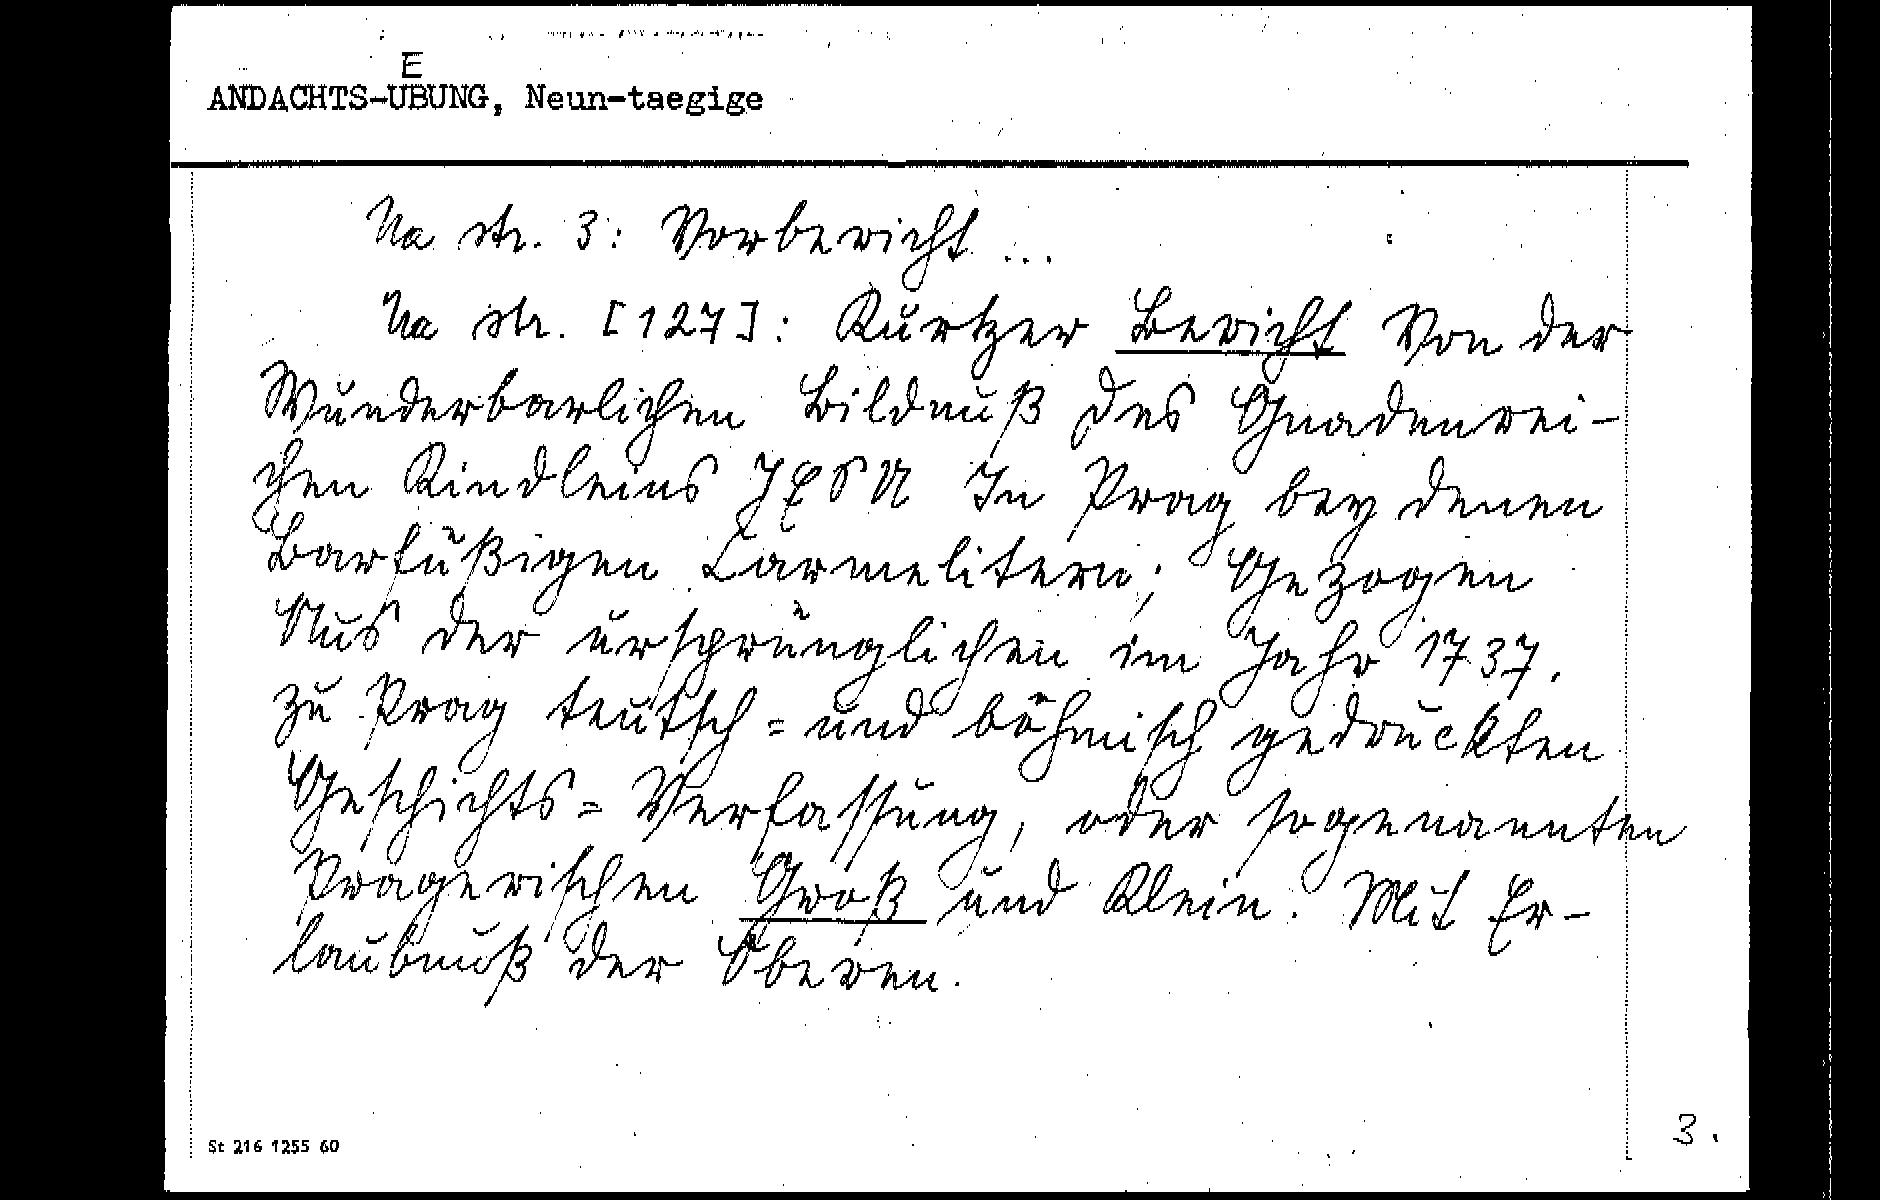 E
ANDACHTS-UBUNG, Neun-taegige
Na str. 3: Vorbericht ...
Na str. [127]: Kurtzer Bericht Von der
Wunderbarlichen Bildnuß Des Gnadenrei-
chen Kindleins JESU In Prag bey denen
Barfüßigen Carmelitern; Gezogen
Aus der ursprünglichen im Jahr 1737.
zu Prag teutsch= und böhmisch gedruckten
Geschichts= Verfassung, oder sogenannten
Pragerischen Groß und Klein. Mit Er-
laubnuß der Oberen.
St 216 1255 60
3.